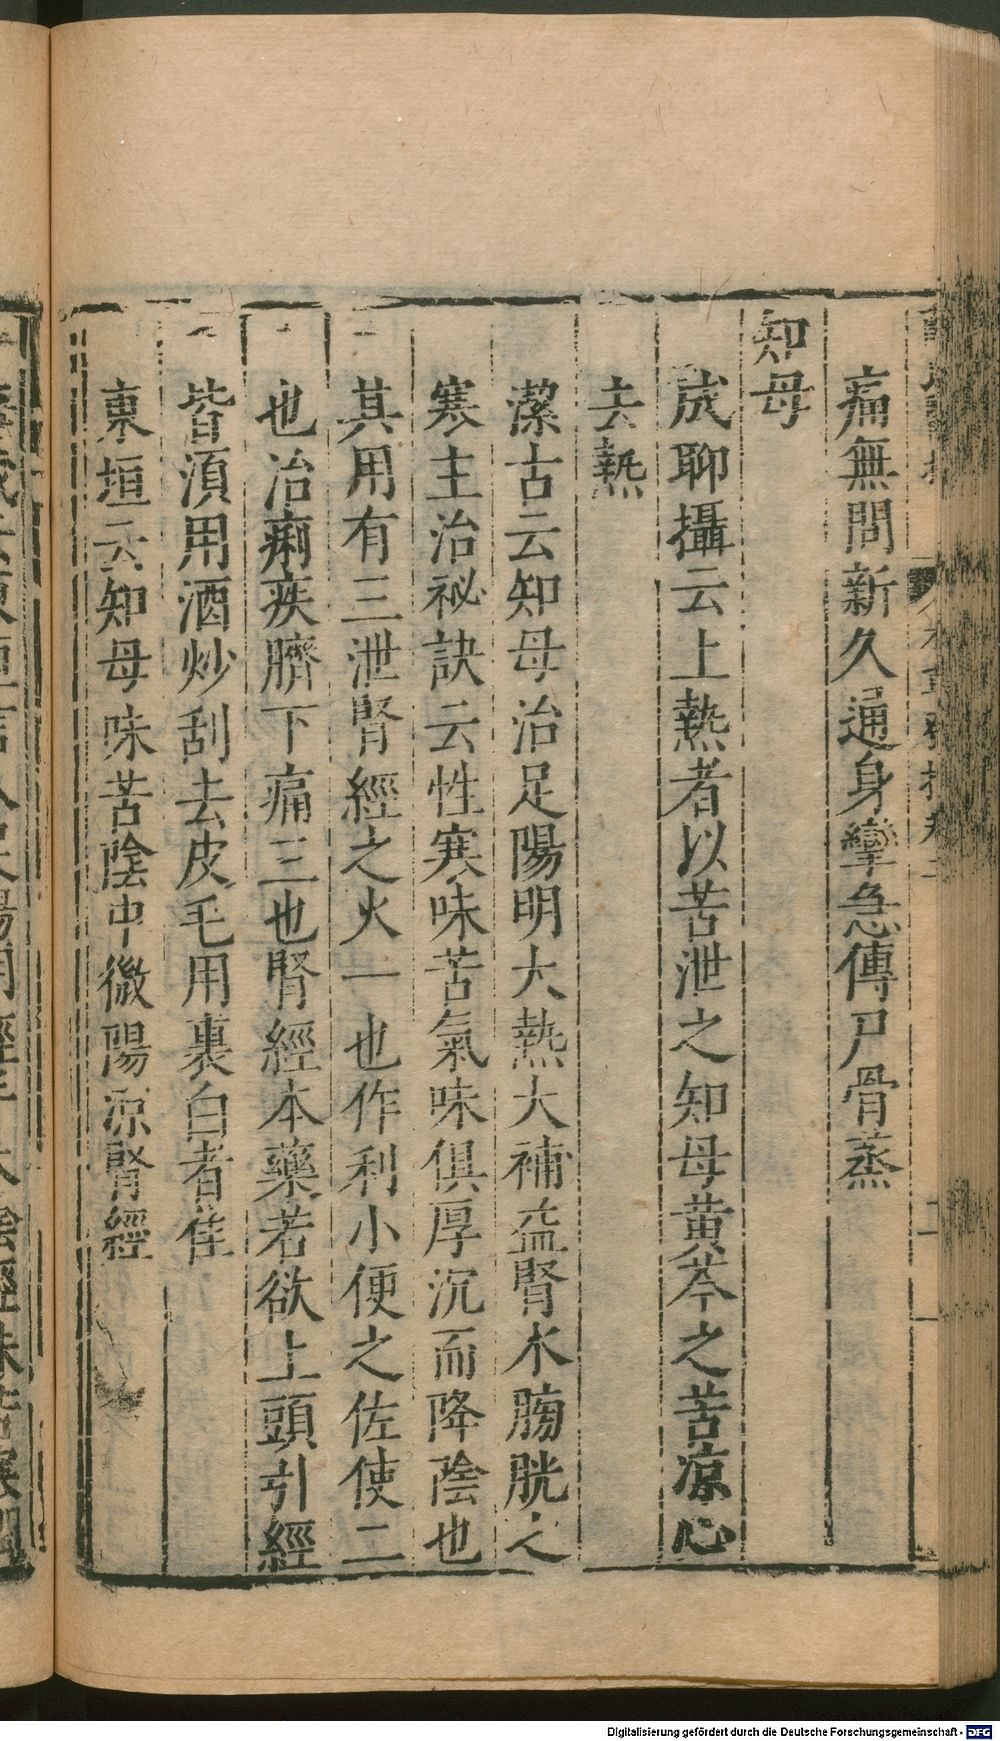 痛無問新久通身攣急傳尸骨蒸
知母
成聊攝云上熱者以苦泄之知母黄芩之苦凉心
去熱
潔古云知母治足陽明大熱大補益腎水膀胱之
寒主治祕訣云性寒味苦氣味俱厚沉而降陰也
其用有三泄腎經之火一也作利小便之佐使二
也治痢疾臍下痛三也腎經本藥若欲上頭引經
皆須用酒炒刮去皮毛用裏白者佳
東垣云知母味苦陰中微陽凉腎經
Digitalisierung gefördert durch die Deutsche Forschungsgemeinschaft - DFG